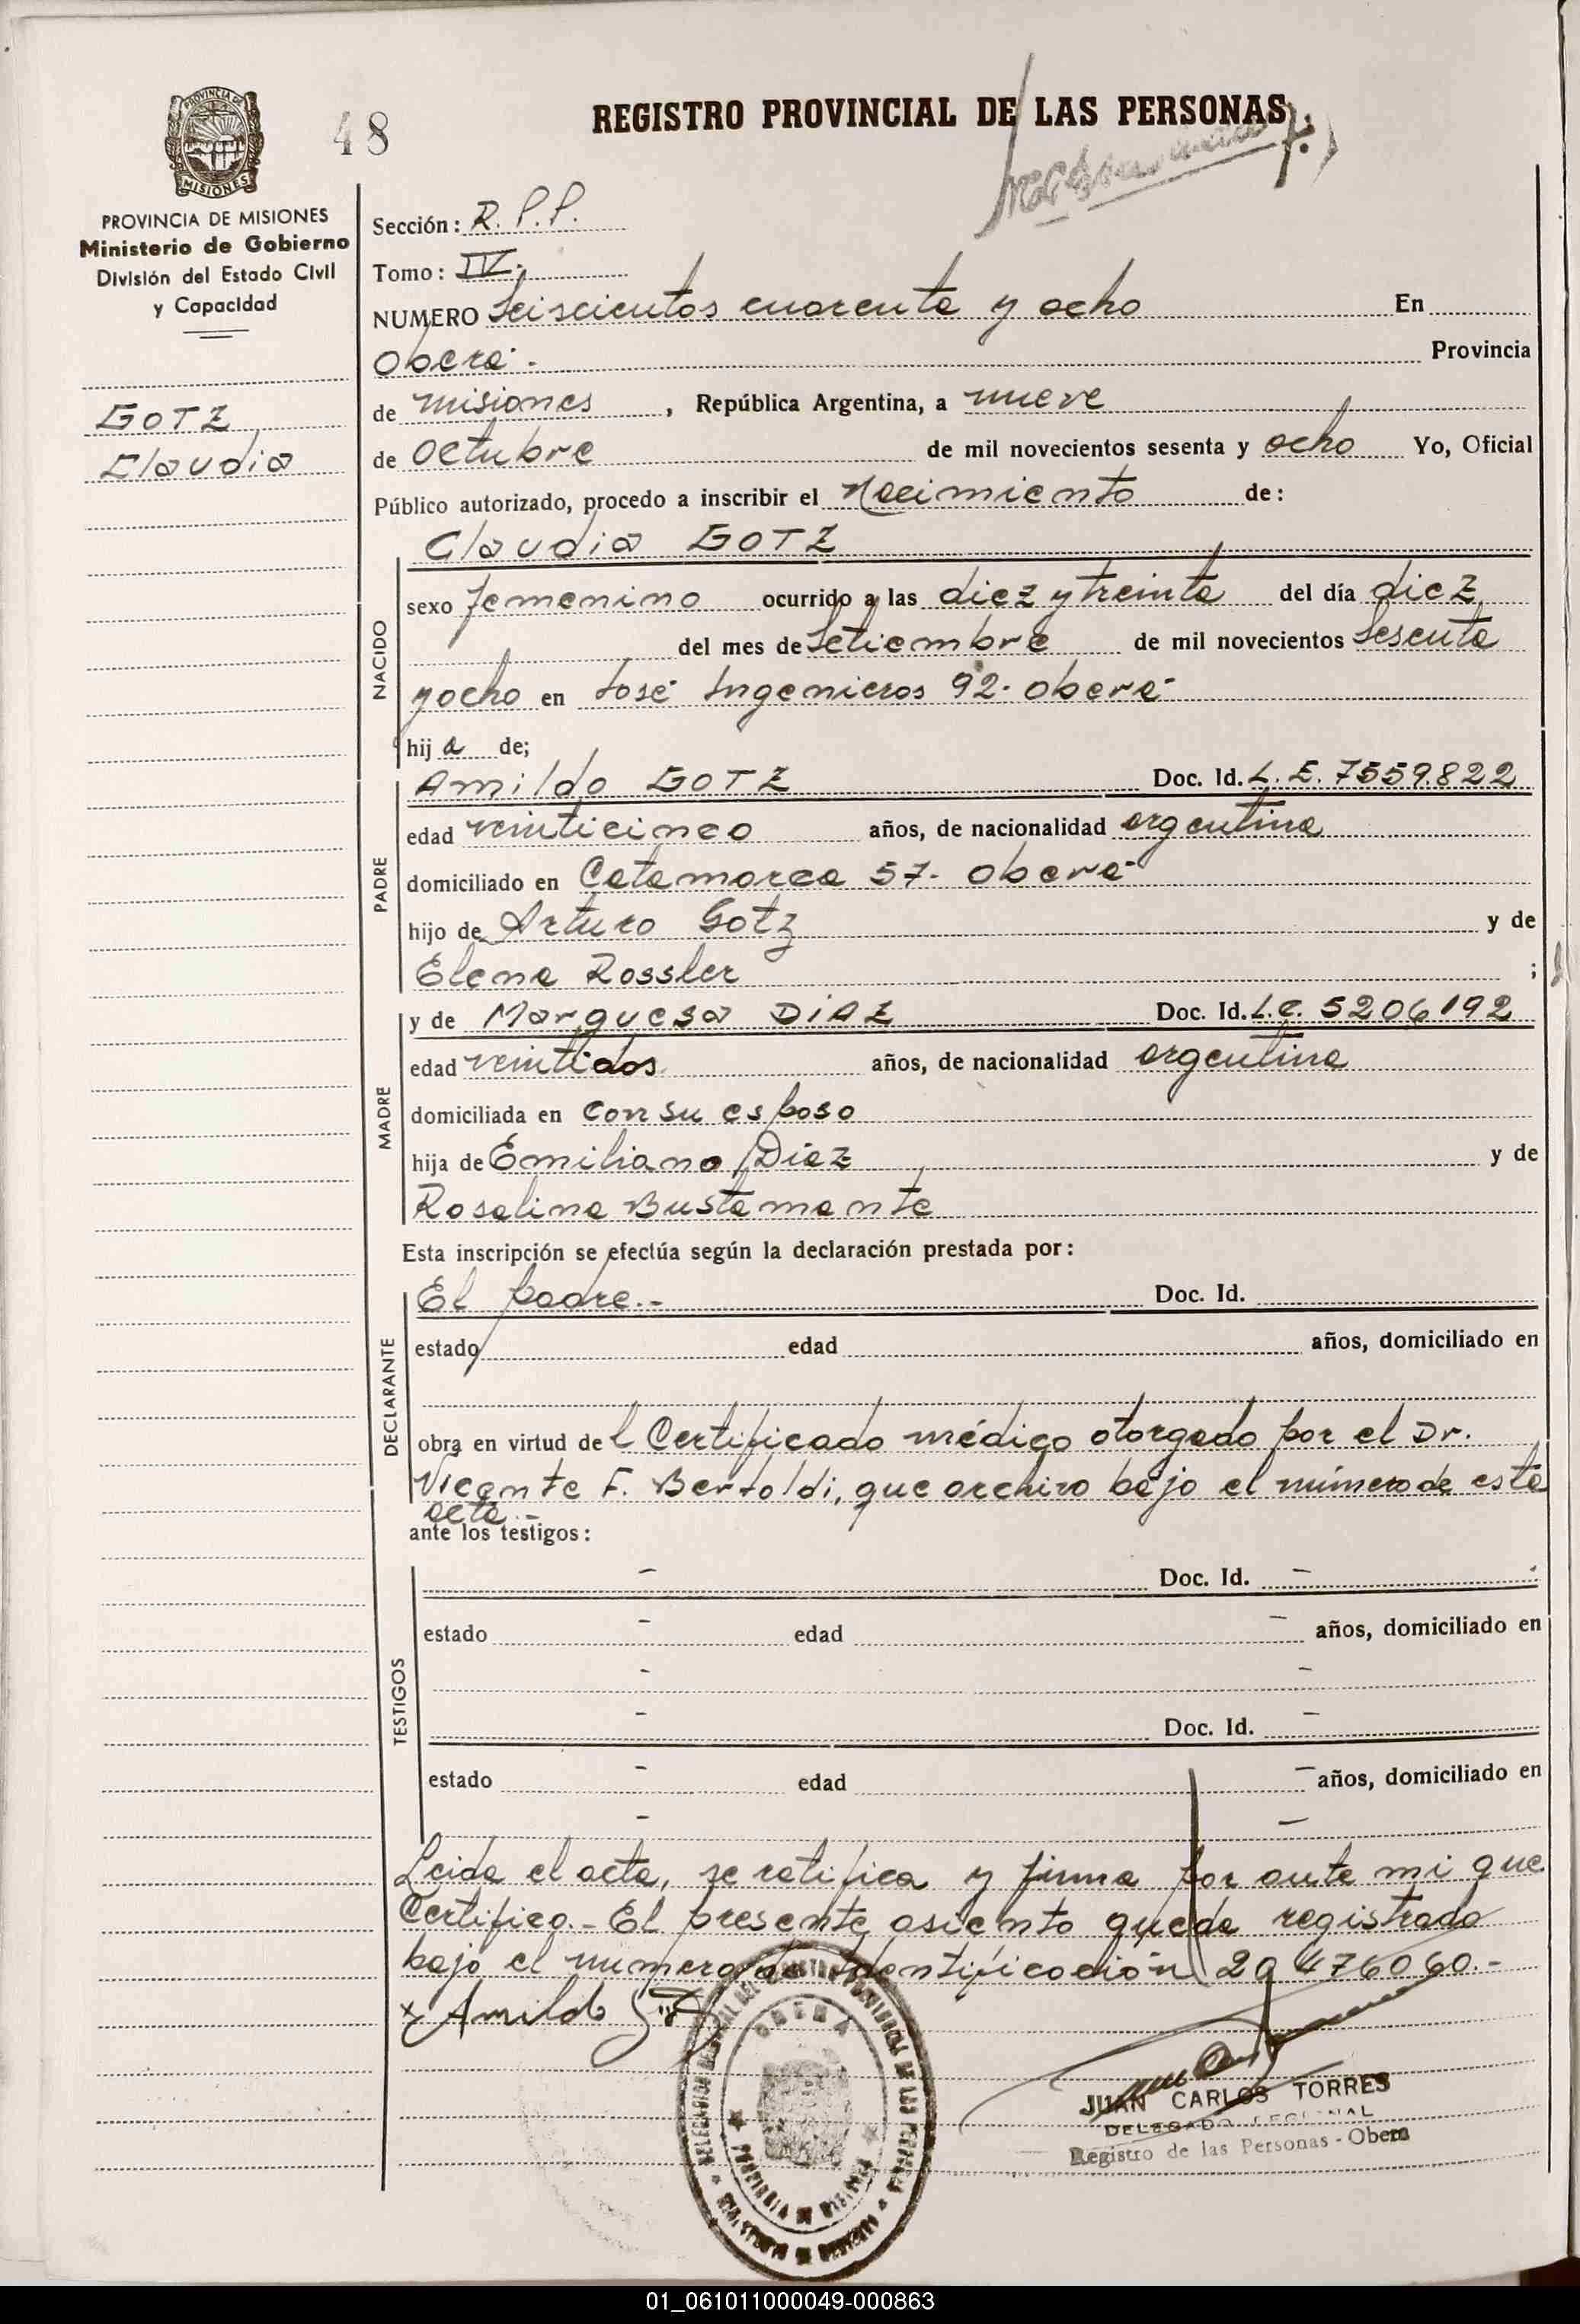 48
REGISTRO PROVINCIAL DE LAS PERSONAS
PROVINCIA DE MISIONES
Ministerio de Gobierno
División del Estado Civil
y Capacidad
GOTZ
Claudia
Sección: R. P. P.
Tomo: IV.
NUMERO Seiscientos cuarenta y ocho En
Oberá.- Provincia
de Misiones, República Argentina, a nueve
de Octubre de mil novecientos sesenta y ocho Yo, Oficial
Público autorizado, procedo a inscribir el Nacimiento de:
NACIDO
Claudia GOTZ
sexo femenino ocurrido a las diez y treinta del día diez
del mes de Setiembre de mil novecientos Sesenta
y ocho en José Ingenieros 92- Oberá-
hija de;
PADRE
Amildo GOTZ Doc. Id. L. E. 7559.822
edad veinticinco años, de nacionalidad argentina
domiciliado en Catamarca 57- Oberá-
hijo de Arturo Gotz y de
Elena Rossler ;
MADRE
y de Marquesa DIAZ Doc. Id. L.C. 5206192
edad veintidos años, de nacionalidad argentina
domiciliada en con su esposo
hija de Emiliano Díaz y de
Rosalina Bustamante
Esta inscripción se efectúa según la declaración prestada por:
DECLARANTE
El padre.- Doc. Id.
estado edad años, domiciliado en
obra en virtud del Certificado médico otorgado por el Dr.
Vicente F. Bertoldi, que archivo bajo el número de esta
acta.-
ante los testigos:
TESTIGOS
- Doc. Id. -
estado - edad - años, domiciliado en
- -
- Doc. Id. -
estado - edad - años, domiciliado en
- -
Leida el acta, se ratifica y firma por ante mi que
Certifico.- El presente asiento queda registrado
bajo el numero de Identificación 20476060.-
x Amildo Gotz
OBERA
PROVINCIA DE MISIONES
JUAN CARLOS TORRES
DELEGADO REGIONAL
Registro de las Personas - Obera
01_061011000049-000863